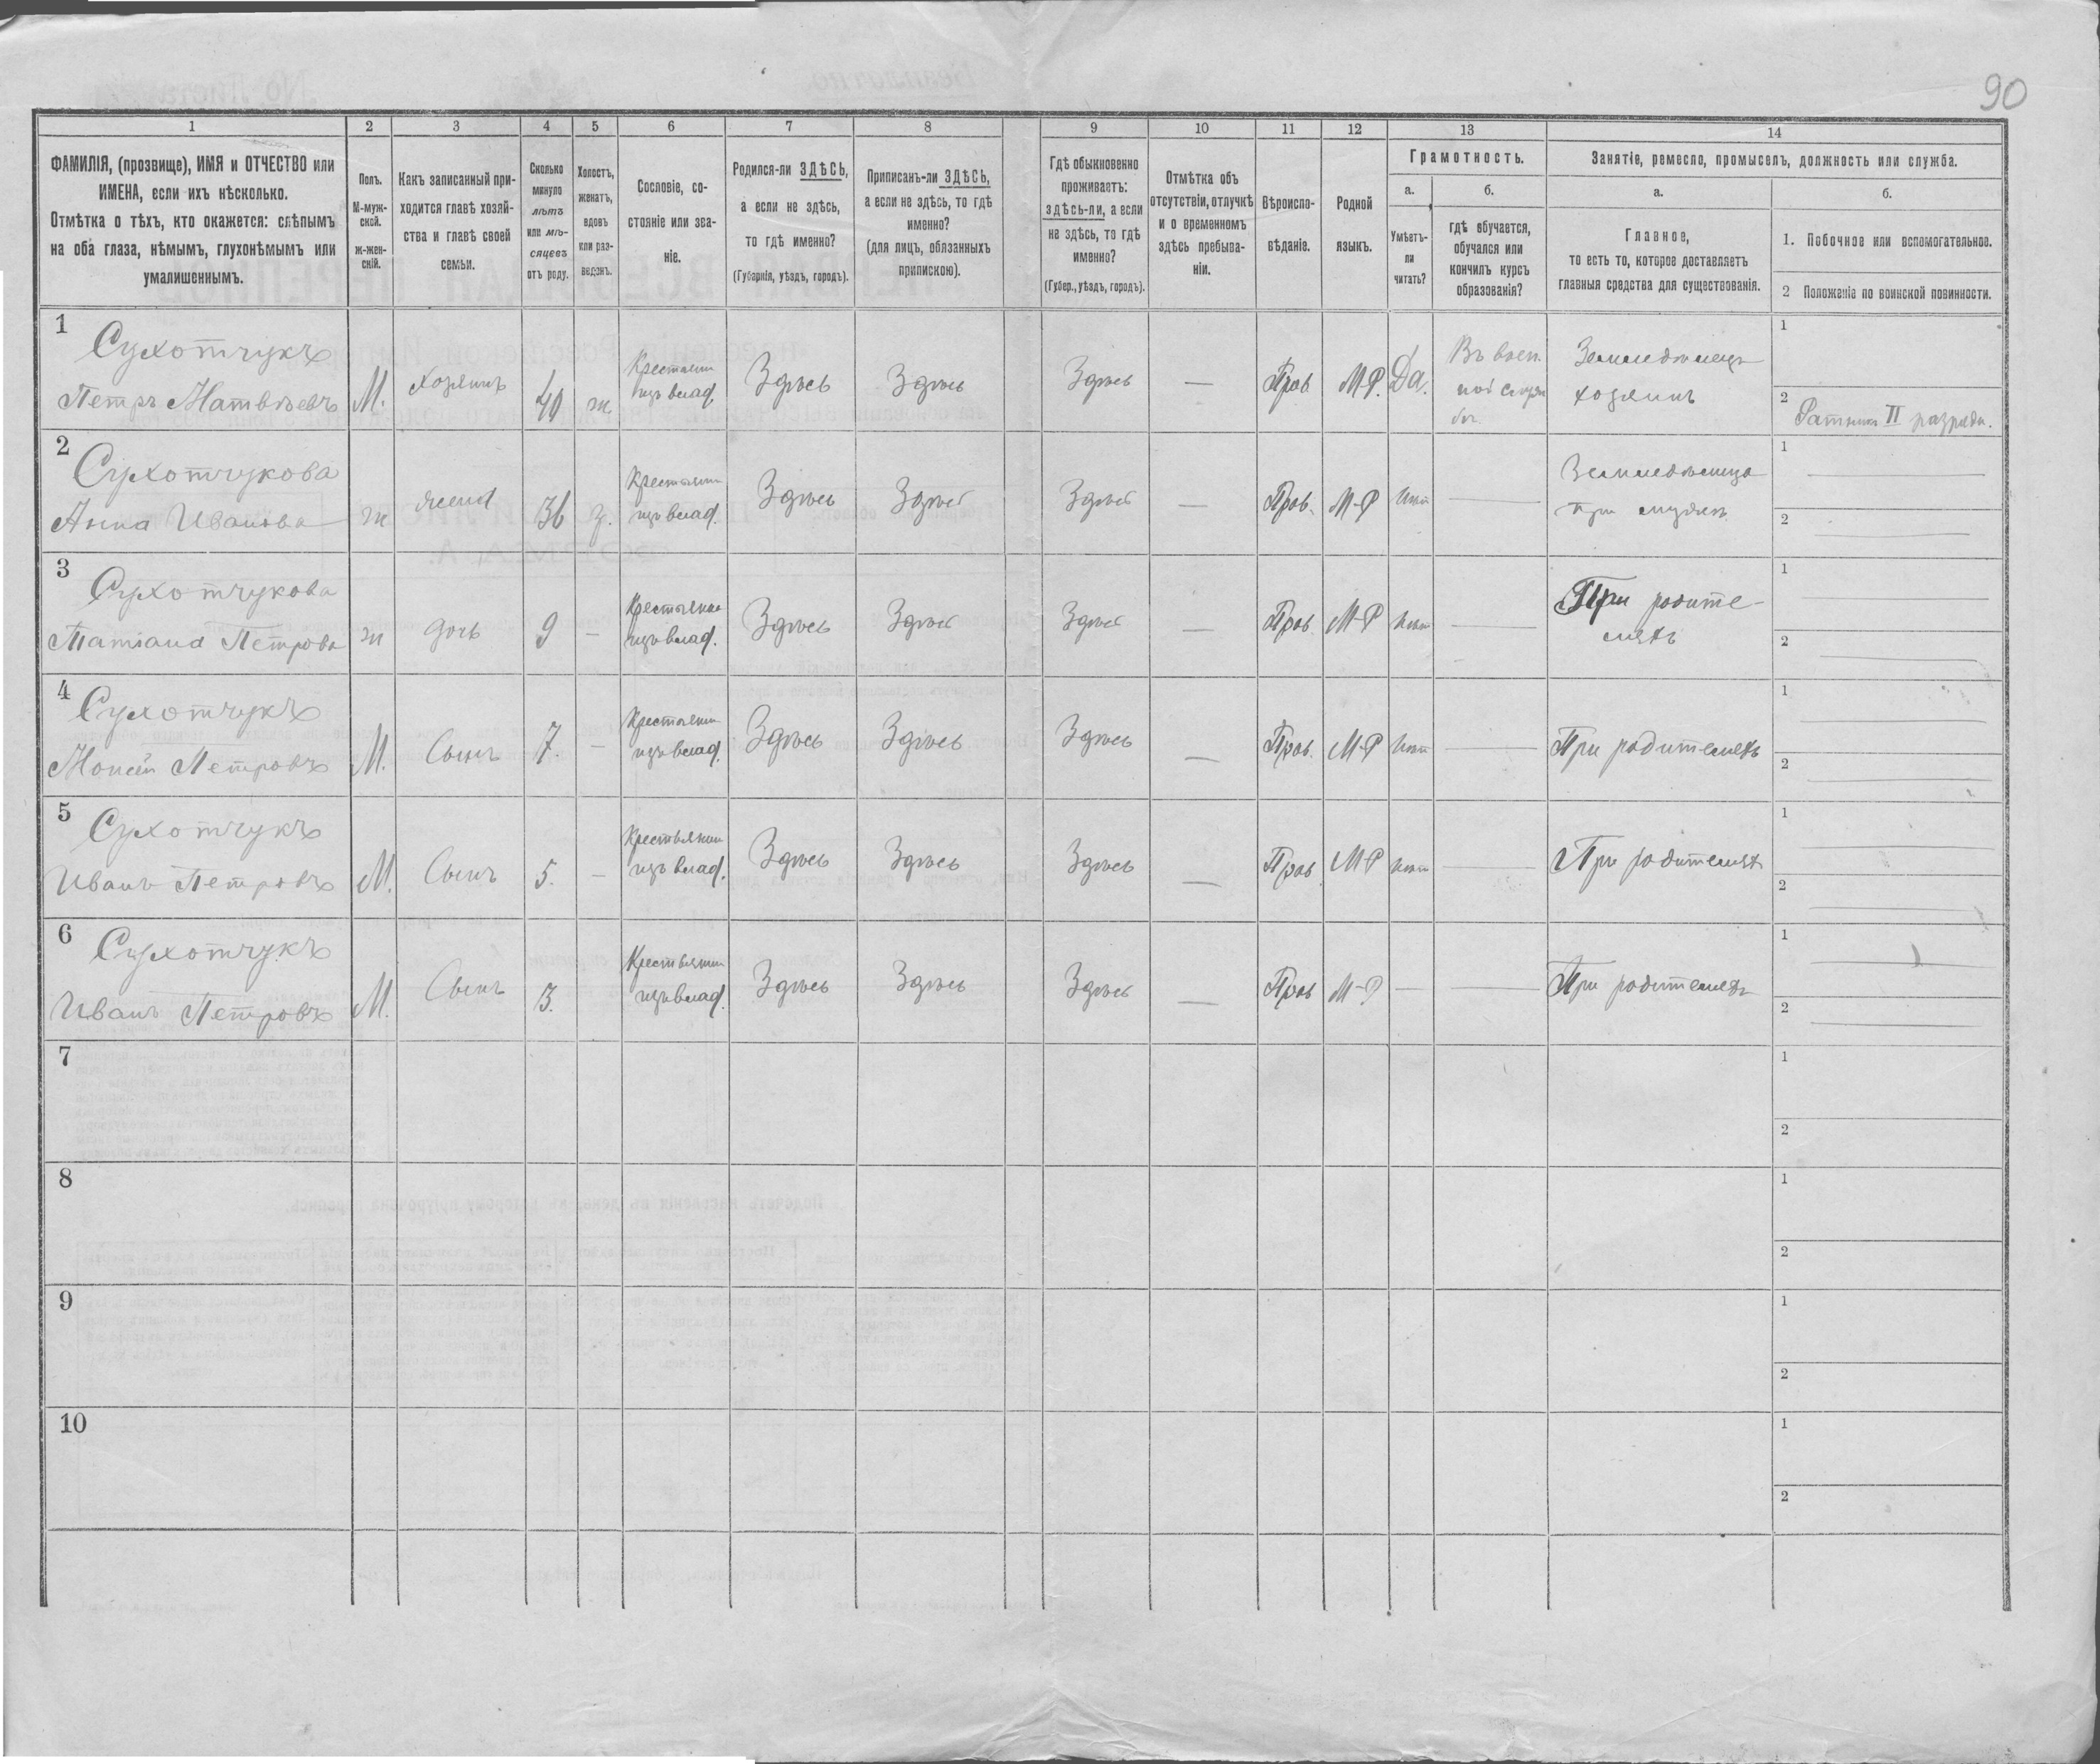 90
1 2 3 4 5 6 7 8 9 10 11 12 13 14
ФАМИЛІЯ, (прозвище), ИМЯ и ОТЧЕСТВО или
ИМЕНА, если ихъ нѣсколько.
Отмѣтка о тѣхъ, кто окажется: слѣпымъ
на оба глаза, нѣмымъ, глухонѣмымъ или
умалишеннымъ.
Полъ.
М-муж-
ской.
ж-жен-
скій.
Какъ записанный при-
ходится главѣ хозяй-
ства и главѣ своей
семьи.
Сколько
минуло
лѣтъ
или мѣ-
сяцевъ
отъ роду.
Холостъ,
женатъ,
вдовъ
или раз-
веденъ.
Сословіе, со-
стояніе или зва-
ніе.
Родился-ли ЗДѢСЬ,
а если не здѣсь,
то гдѣ именно?
(Губернія, уѣздъ, городъ).
Приписанъ-ли ЗДѢСЬ,
а если не здѣсь, то гдѣ
именно?
(для лицъ, обязанныхъ
припискою).
Гдѣ обыкновенно
проживаетъ:
здѣсь-ли, а если
не здѣсь, то гдѣ
именно?
(Губер., уѣздъ, городъ).
Отмѣтка объ
отсутствіи, отлучкѣ
и о временномъ
здѣсь пребыва-
ніи.
Вѣроиспо-
вѣданіе.
Родной
языкъ.
Грамотность.
а.
Умѣетъ-
ли
читать?
б.
гдѣ обучается,
обучался или
кончилъ курсъ
образованія?
Занятіе, ремесло, промыселъ, должность или служба.
а.
Главное,
то есть то, которое доставляетъ
главныя средства для существованія.
б.
1. Побочное или вспомогательное.
2 Положеніе по воинской повинности.
1
Сухотчукъ
Петръ Матвѣевъ
М.
хозяинъ
40
ж.
Крестьянин
изъ влад.
Здѣсь
Здѣсь
Здѣсь
—
Прав
М-Р.
Да.
Въ воен
ной служ
бѣ.
Земледѣлецъ
хозяинъ
1
2
Ратникъ II разряда.
2
Сухотчукова
Анна Иванова
ж
жена
36
з.
Крестьянин
изъ влад.
Здѣсь
Здѣсь
Здѣсь
—
Прав.
М-Р
нѣт
—
Земледѣлица
при мужѣ
1 —
2 —
3
Сухотчукова
Татіана Петрова
ж
дочь
9
—
Крестьянин
изъ влад.
Здѣсь
Здѣсь
Здѣсь
—
Прав
М-Р
нѣт
—
При родите-
ляхъ
1 —
2 —
4
Сухотчукъ
Моисей Петровъ
М.
Сынъ
7.
—
Крестьянин
изъ влад.
Здѣсь
Здѣсь
Здѣсь
—
Прав.
М-Р
нѣт
—
При родителяхъ
1 —
2 —
5
Сухотчукъ
Иванъ Петровъ
М.
Сынъ
5.
—
Крестьянин
изъ влад.
Здѣсь
Здѣсь
Здѣсь
—
Прав
М-Р
нѣт
—
При родителяхъ
1 —
2 —
6
Сухотчукъ
Иванъ Петровъ
М.
Сынъ
3.
Крестьянин
изъ влад.
Здѣсь
Здѣсь
Здѣсь
—
Прав
М-Р
—
—
При родителяхъ
1 —
2 —
7
1
2
8
1
2
9
1
2
10
1
2